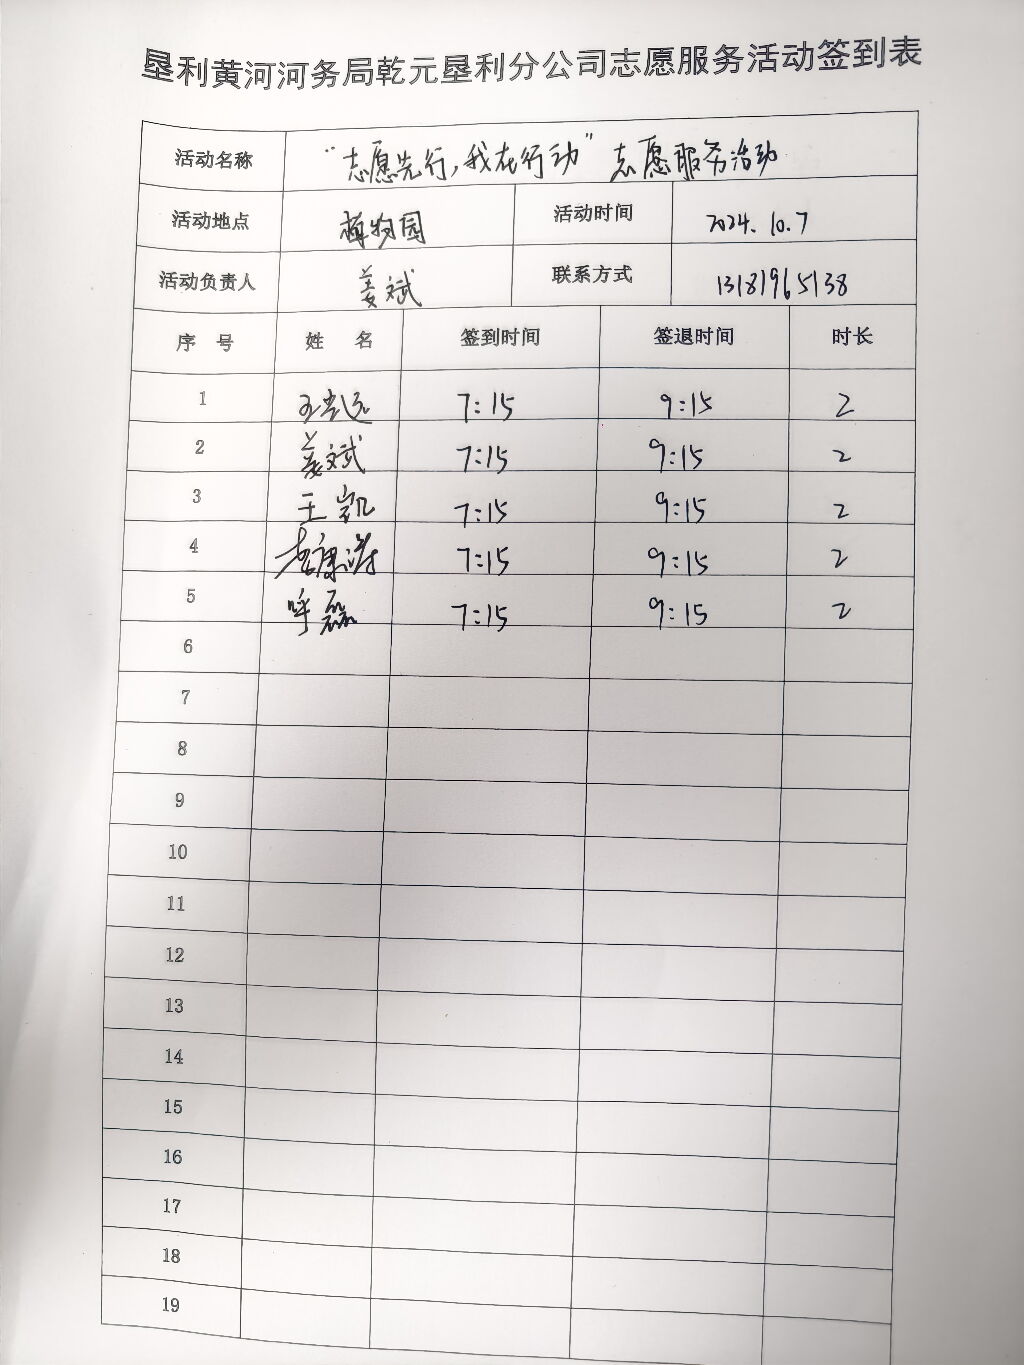 垦利黄河河务局乾元垦利分公司志愿服务活动签到表
活动名称 “志愿先行,我在行动”志愿服务活动
活动地点 植物园 活动时间 2024.10.7
活动负责人 姜斌 联系方式 13181965138
序 号 姓 名 签到时间 签退时间 时长
1 7:15 9:15 2
2 姜斌 7:15 9:15 2
3 王凯 7:15 9:15 2
4 7:15 9:15 2
5 呼磊 7:15 9:15 2
6
7
8
9
10
11
12
13
14
15
16
17
18
19